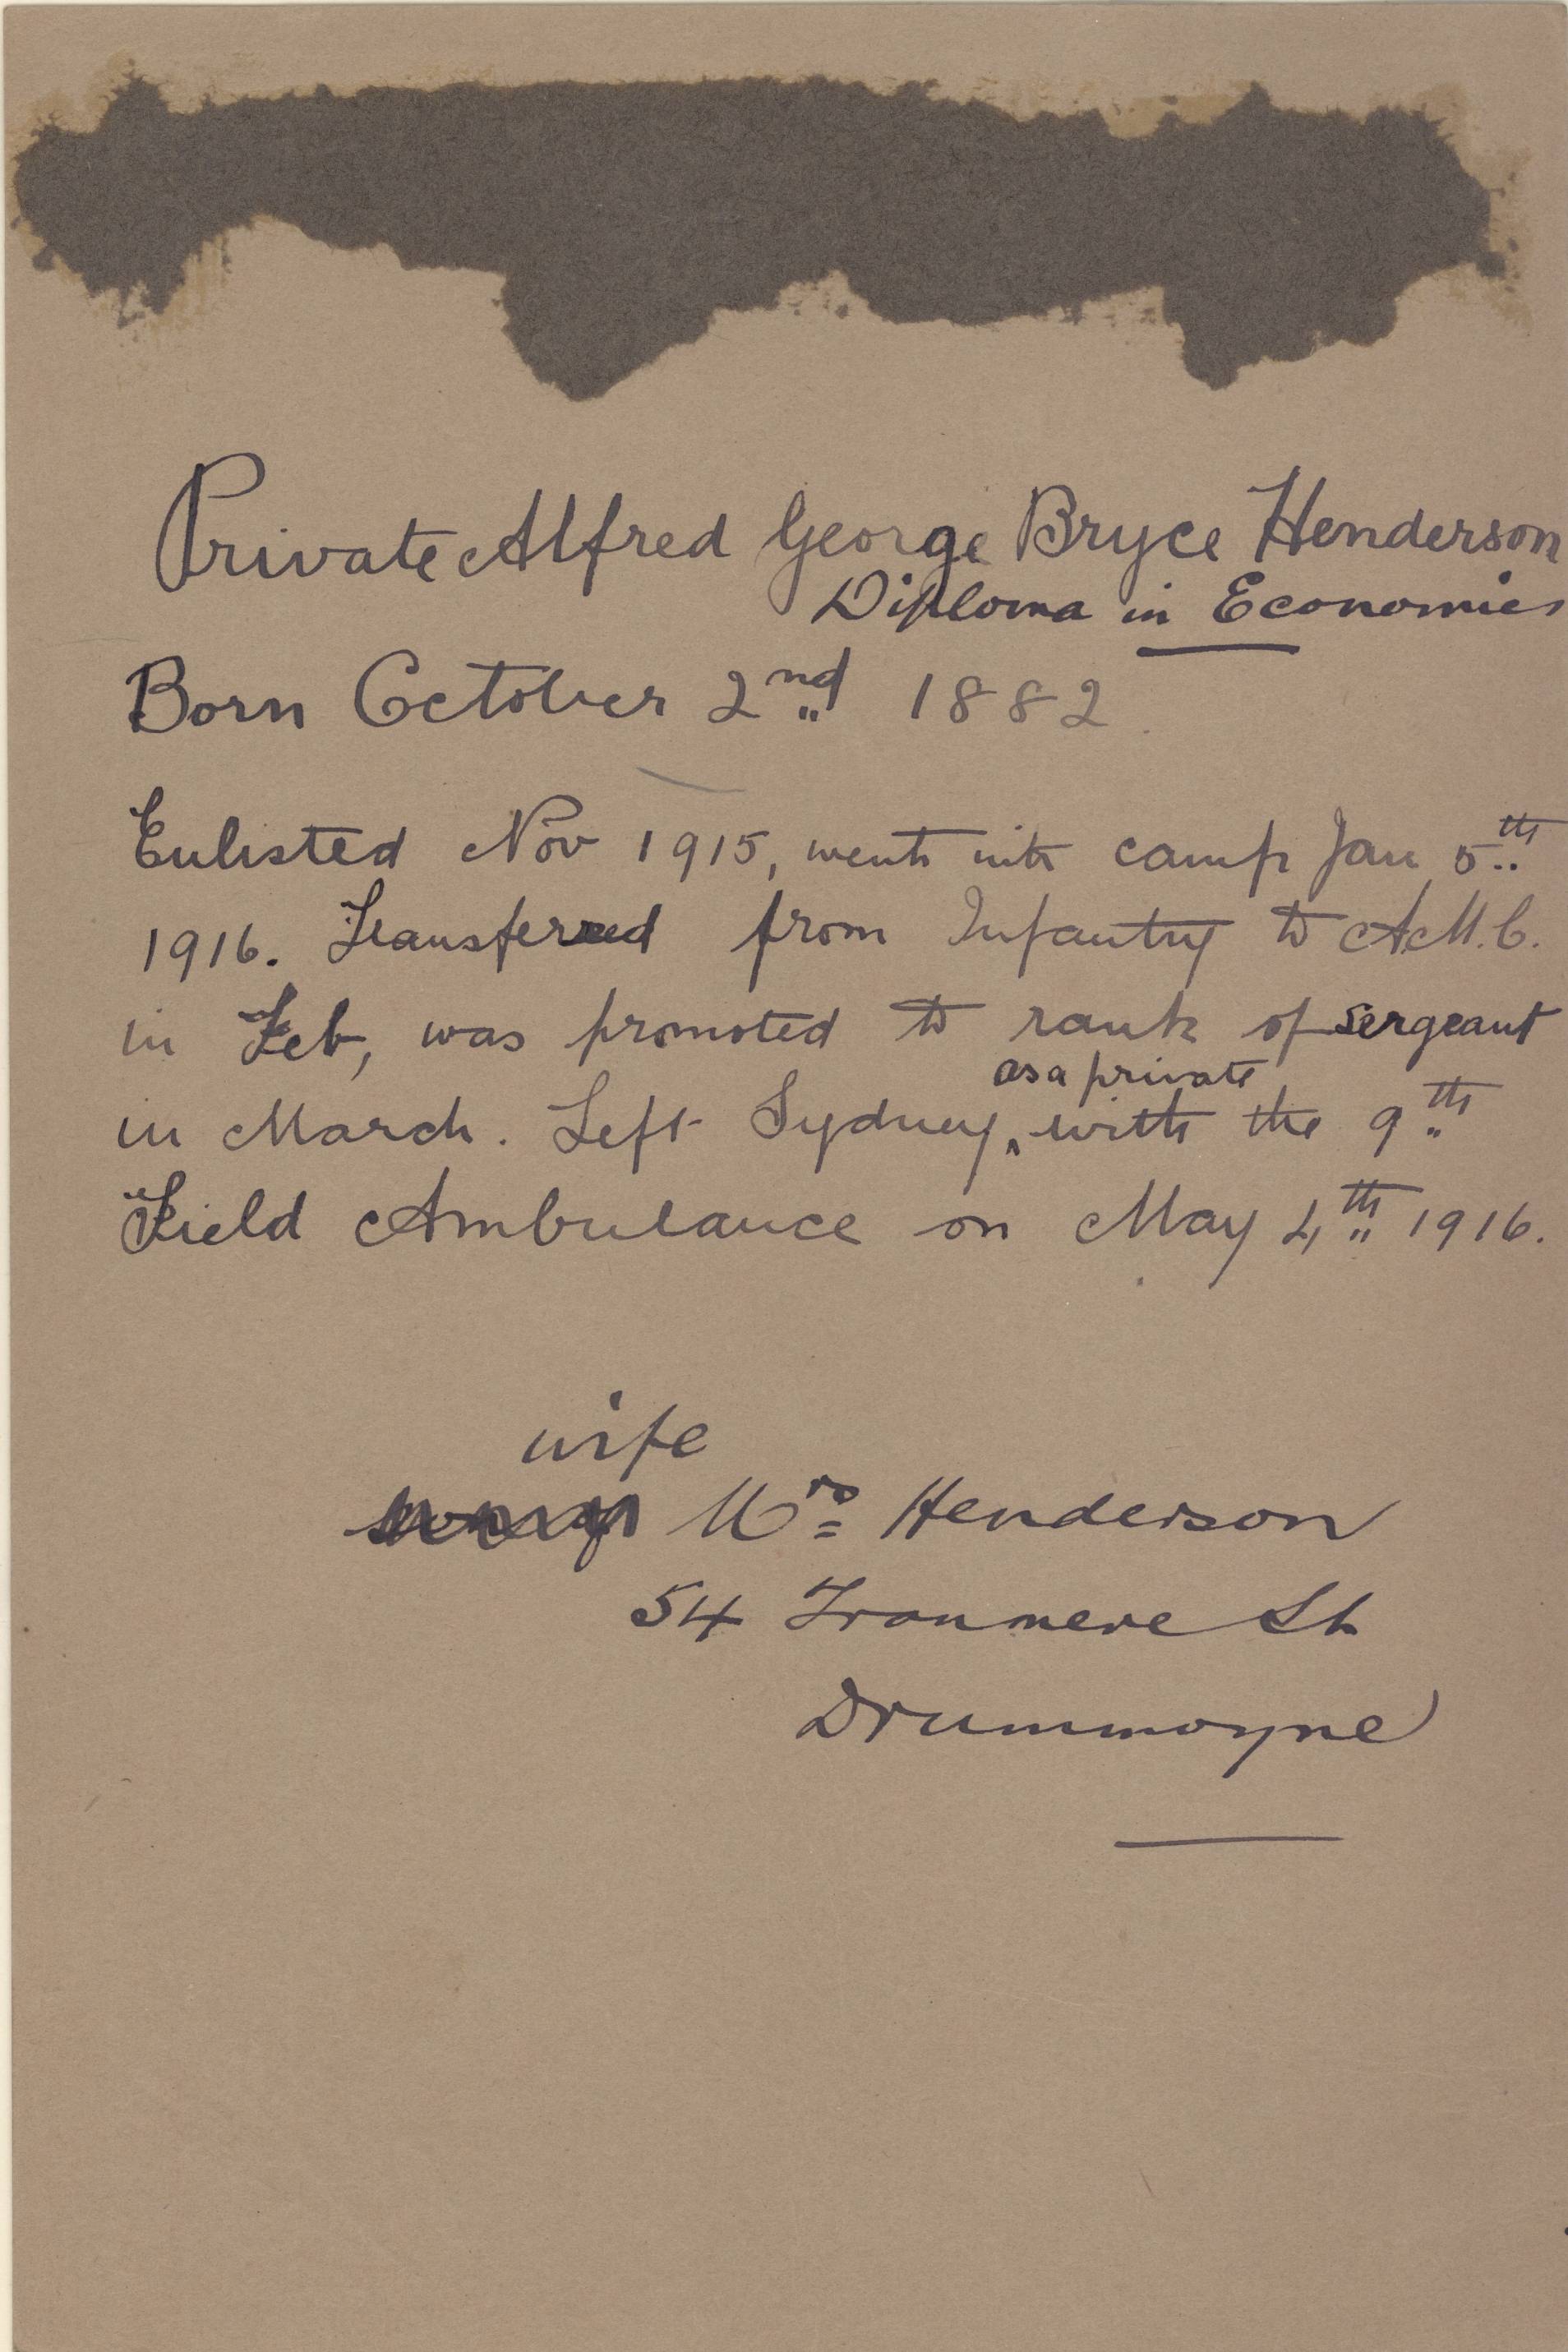 Private Alfred George Bryce Henderson
Diploma in Economics
Born October 2nd 1882
Enlisted Nov 1915, went into camp Jan 5th
1916. Transferred from Infantry to A.M.C.
in Feb, was promoted to rank of sergeant
as a private
in March. Left Sydney, with the 9th
Field Ambulance on May 4th 1916.
wife
Mrs Henderson
54 Tranmere St
Drummoyne